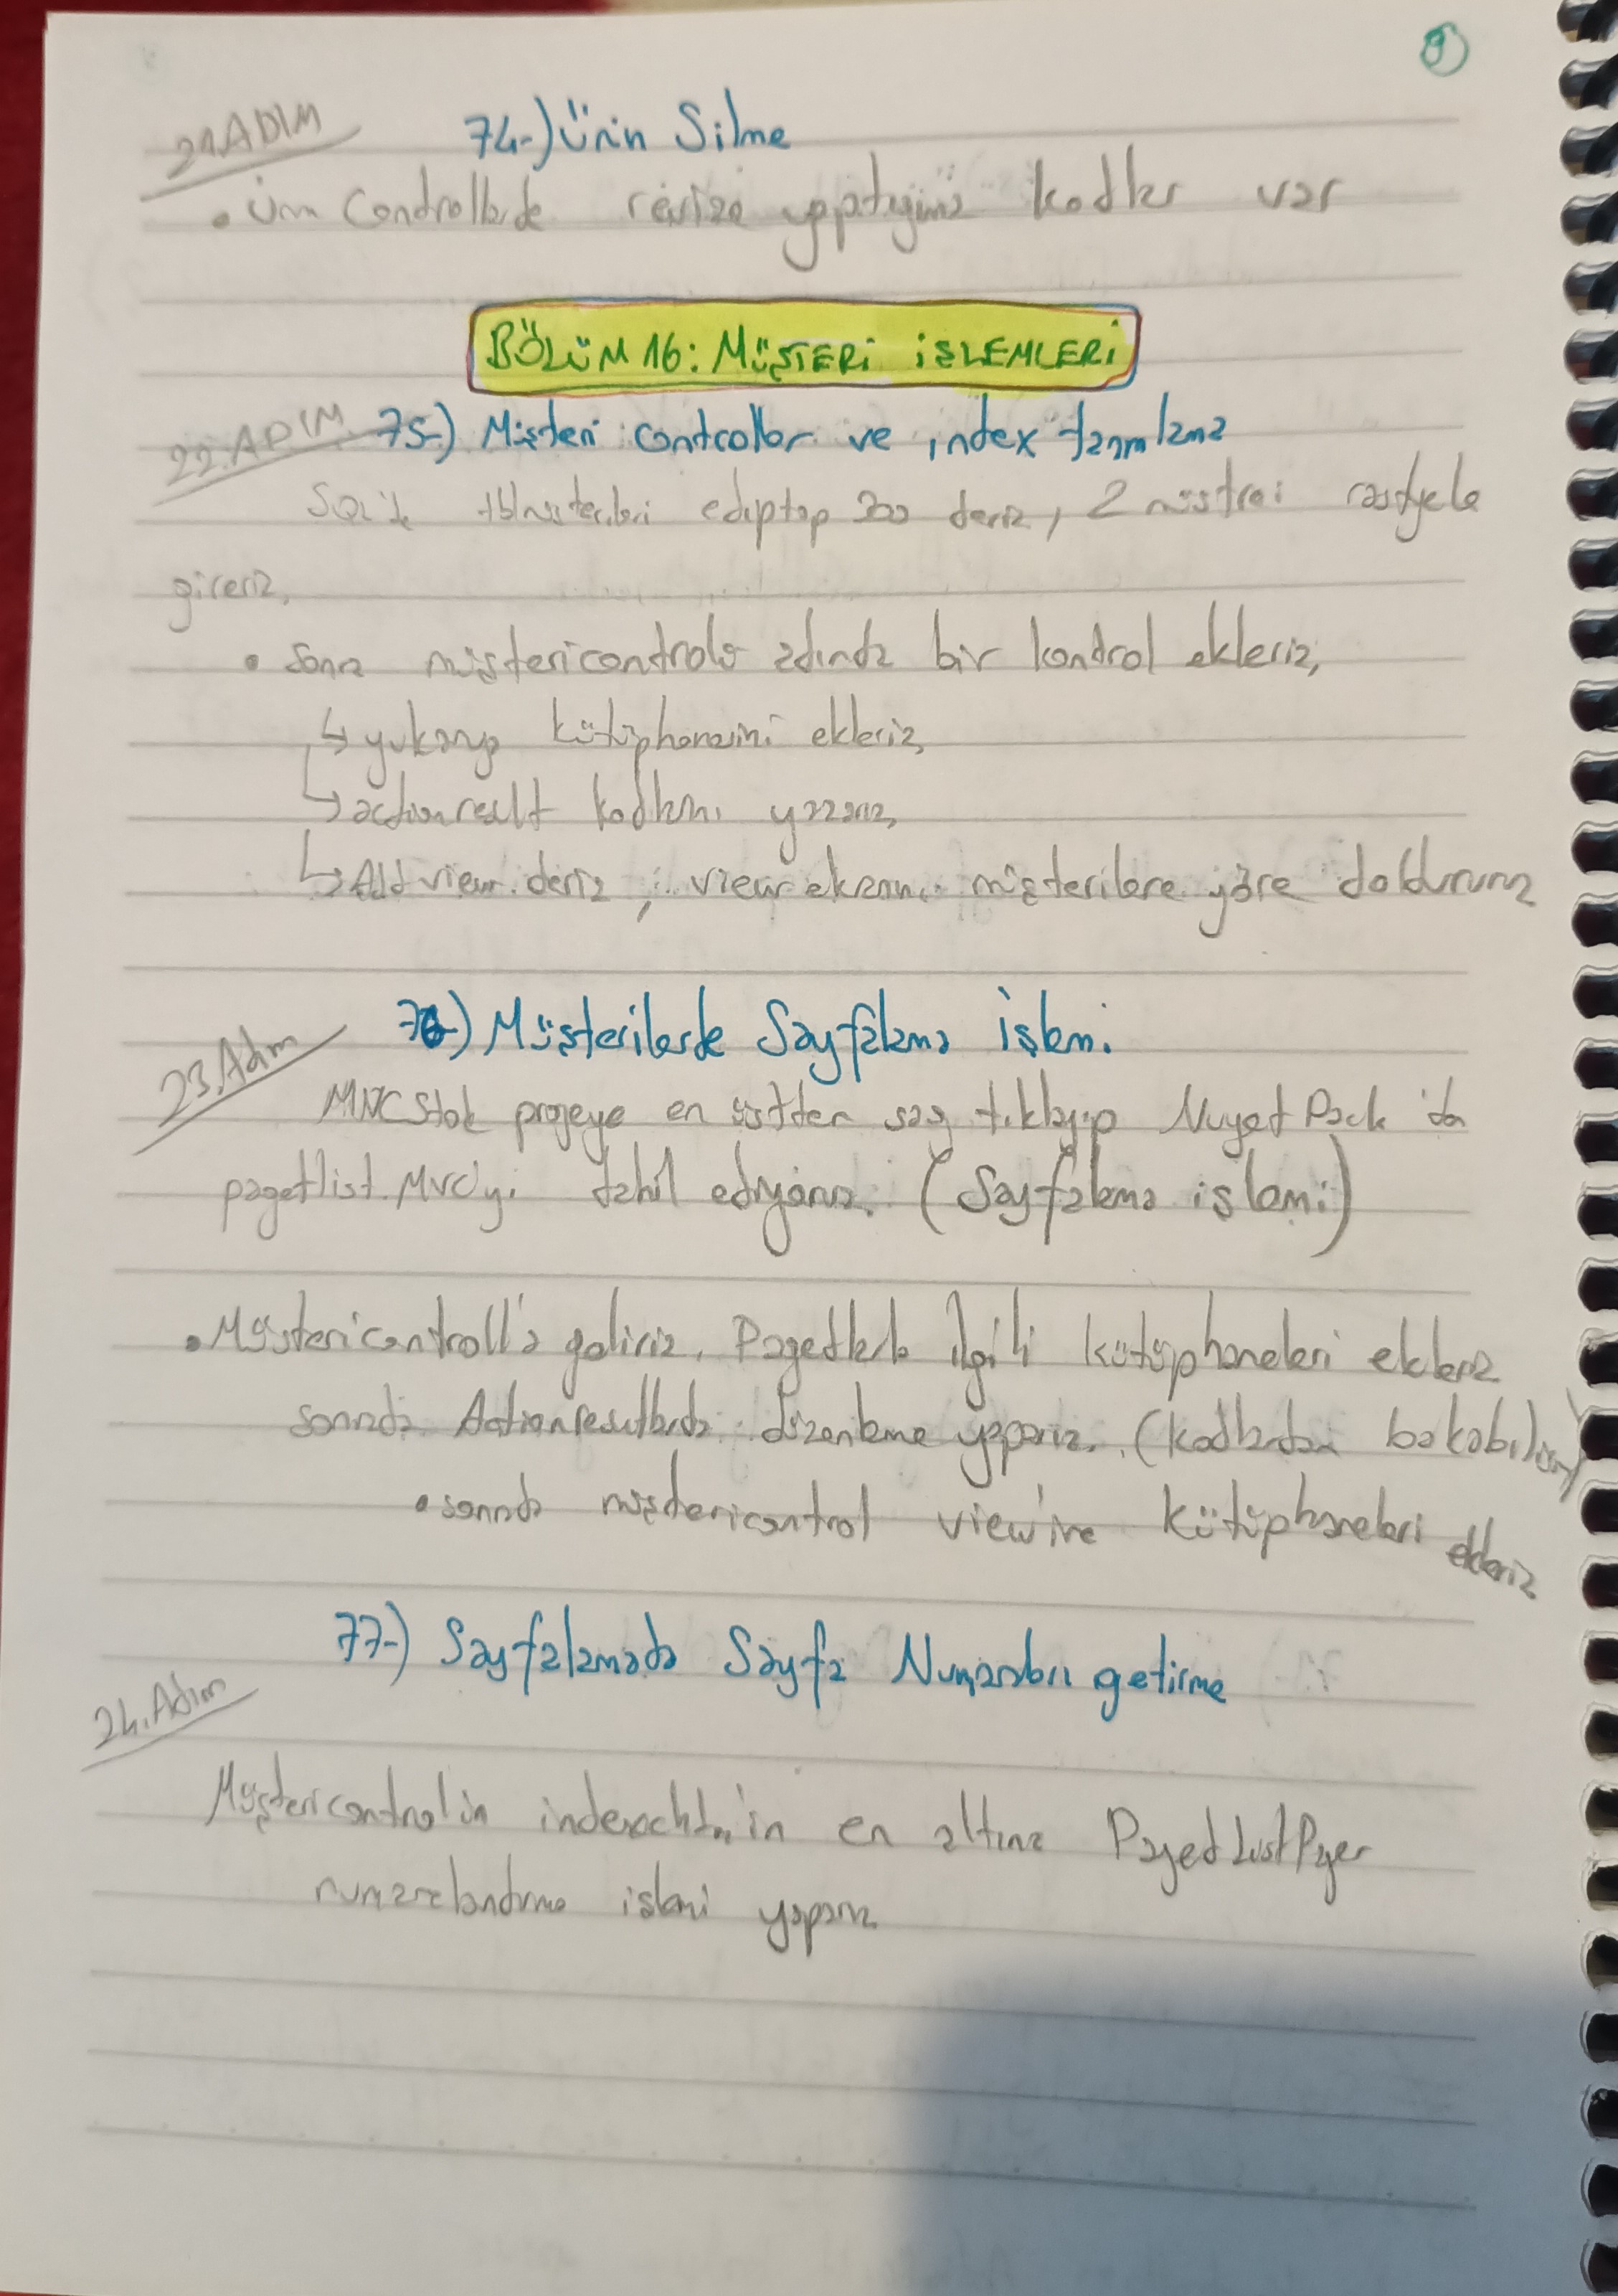 9
21.ADIM
74-) Ürün Silme
• Ürün Controllerde revize yaptığımız kodlar var
BÖLÜM 16: MÜŞTERİ İŞLEMLERİ
22.ADIM 75-) Müşteri controller ve index tanımlama
SQL'de tblmüşterileri edit top 200 deriz, 2 müşteri rastgele
gireriz.
• Sonra müştericontroller adında bir kontrol ekleriz,
↳ yukarıya kütüphanesini ekleriz,
↳ actionresult kodlarını yazarız,
↳ Add view deriz, view ekranını müşterilere göre doldururuz
23.Adım
76-) Müşterilerde Sayfalama işlemi
MVCStok projeye en üstten sağ tıklayıp Nuget Pack'da
pagetlist.MVC'yi dahil ediyoruz. (Sayfalama işlemi)
• Müştericontroll'a geliriz. Pagedlerle ilgili kütüphaneleri ekleriz
sonrada Actionresultlarda düzenleme yaparız. (kodlardan bakabilirsin)
• sonrada müştericontrol view'ine kütüphaneleri ekleriz
77-) Sayfalamada Sayfa Numaraları getirme
24.Adım
Müştericontrolün indexin en altına PagedListPager
numaralandırma işlemi yaparız